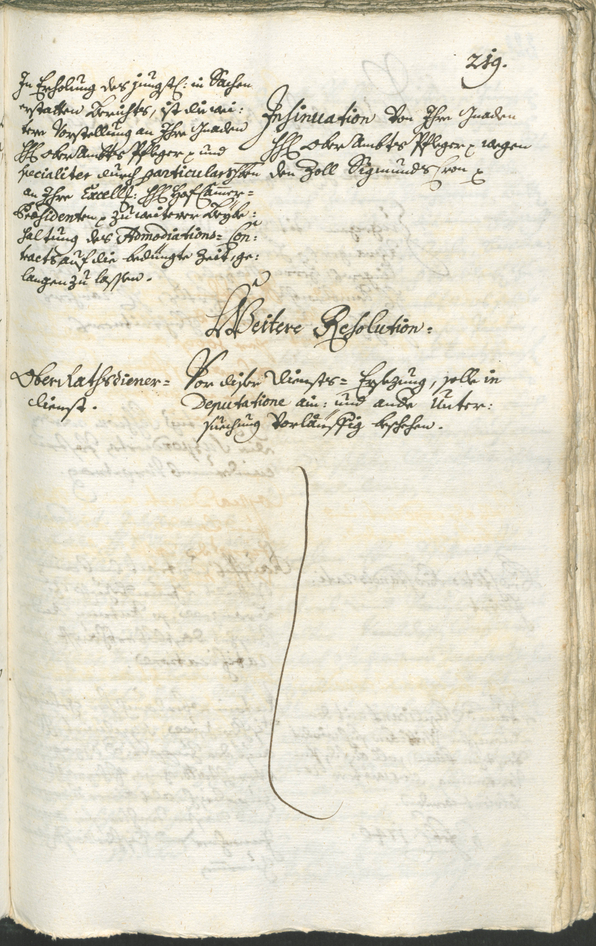 219.
In Erholung des jüngst: in Sachen
erstatten Berichts, ist die wei:
tere Vorstellung an Ihre Gnaden
HH. ober Ambts Pfleger und
specialiter durch particular
an Ihre Excell: HH. Hof Camer=
Præsidenten zu weiterer Beybe:
haltung des Admodiations= Con:
tracts auf die bedüngte Zeit, ge:
langen zu lassen.
Insinuation von Ihre Gnaden
HH. ober Ambts Pfleger wegen
den Zoll Sigmunds Cron
Weitere Resolution:
Ober Rathsdiener=
dienst.
Vor diser Diensts= Ersezung, solle in
Deputatione ain: und ande Unter:
suechung vorläuffig beschehen.